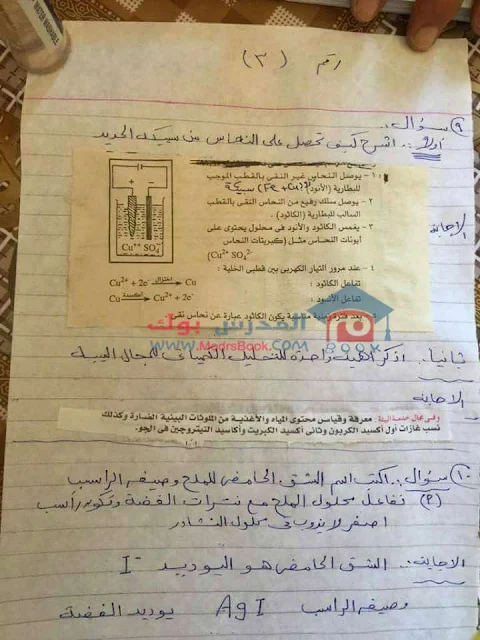 رقم (٣)
٩) سؤال..
أولاً.. اشرح كيف تحصل على النحاس من سبيكة الحديد
الإجابة
١- يوصل النحاس غير النقى بالقطب الموجب
للبطارية (الأنود) (Fe + Cu) سبيكة
٢ - يوصل سلك رفيع من النحاس النقى بالقطب
السالب للبطارية (الكاثود).
٣- يغمس الكاثود والأنود فى محلول يحتوى على
أيونات النحاس مثل (كبريتات النحاس
(Cu²⁺ SO₄²⁻
٤ - عند مرور التيار الكهربى بين قطبى الخلية :
تفاعل الكاثود : Cu²⁺ + 2e⁻ اختزال Cu
تفاعل الأنود : Cu أكسدة Cu²⁺ + 2e⁻
بعد فترة زمنية مناسبة يكون الكاثود عبارة عن نحاس نقى
+ -
Cu⁺⁺ SO₄⁻⁻
المدرس بوك
www.MedrsBook.com
ثانيا.. اذكر أهمية واحدة للتحليل الكيميائى للمجال البيئة
الإجابة
وفى مجال خدمة البيئة : معرفة وقياس محتوى المياه والأغذية من الملوثات البيئية الضارة وكذلك
نسب غازات أول أكسيد الكربون وثانى أكسيد الكبريت وأكاسيد النيتروجين فى الجو.
١٠) سؤال.. اكتب اسم الشق الحامضى للملح وصيغه الراسب
(P) تفاعل محلول الملح مع نترات الفضة وتكون راسب
اصفر لا يذوب فى محلول النشادر
الإجابة.. الشق الحامضى هو اليوديد I⁻
وصيغه الراسب AgI يوديد الفضة